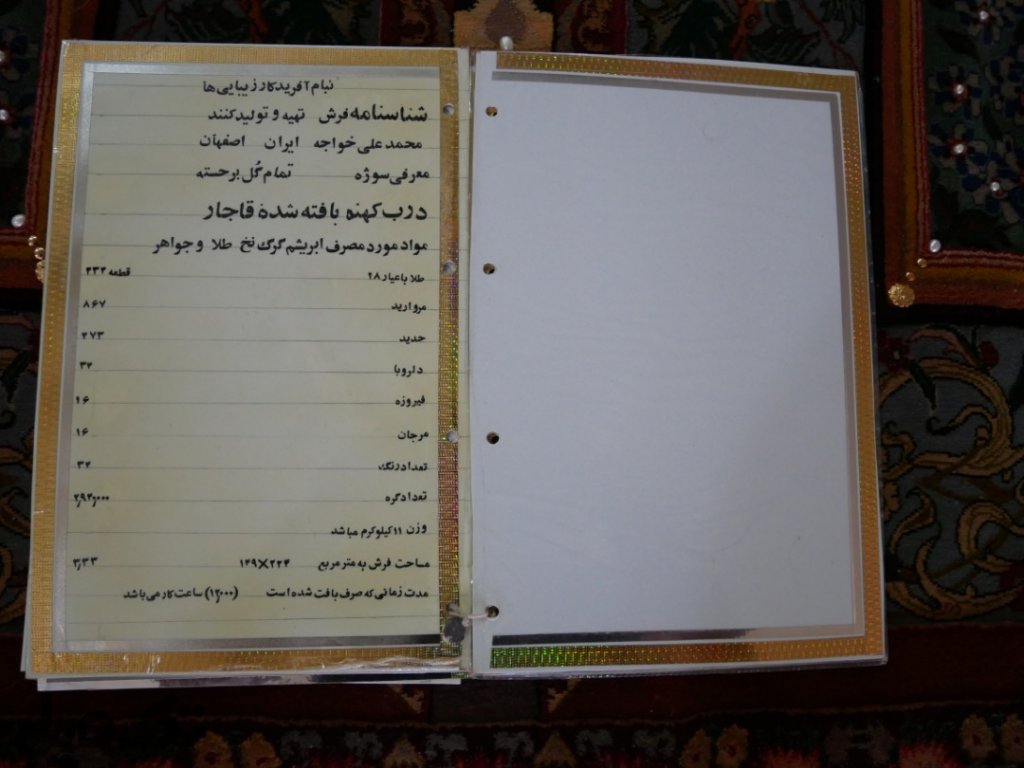 بنام آفریدگار زیبایی ها
شناسنامه فرش تهیه و تولید کنند
محمد علی خواجه ایران اصفهان
معرفی سوژه تمام گل برجسته
درب کهنه بافته شده قاجار
مواد مورد مصرف ابریشم کرک نخ طلا و جواهر
طلا با عیار ۲۸ قطعه ۴۳۴
مروارید ۸۶۷
حدید ۲۷۳
دلروبا ۳۲
فیروزه ۱۶
مرجان ۱۶
تعداد رنگ ۳۴
تعداد گره
وزن ۱۱ کیلوگرم مباشد
مساحت فرش به متر مربع ۱۴۹×۲۲۴ ۳٫۳۳
مدت زمانی که صرف بافت شده است (۱۲٫۰۰۰) ساعت کار می باشد